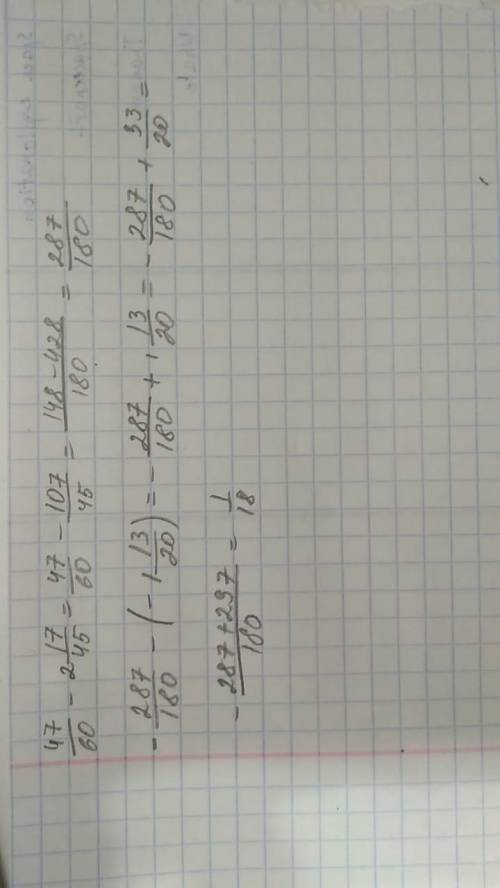 47/60 - 2 17/45 = 47/60 - 107/45 = 148-428/180 = 287/180
- 287/180 - (-1 13/20) = - 287/180 + 1 13/20 = - 287/180 + 33/20 =
- 287+297/180 = 1/18